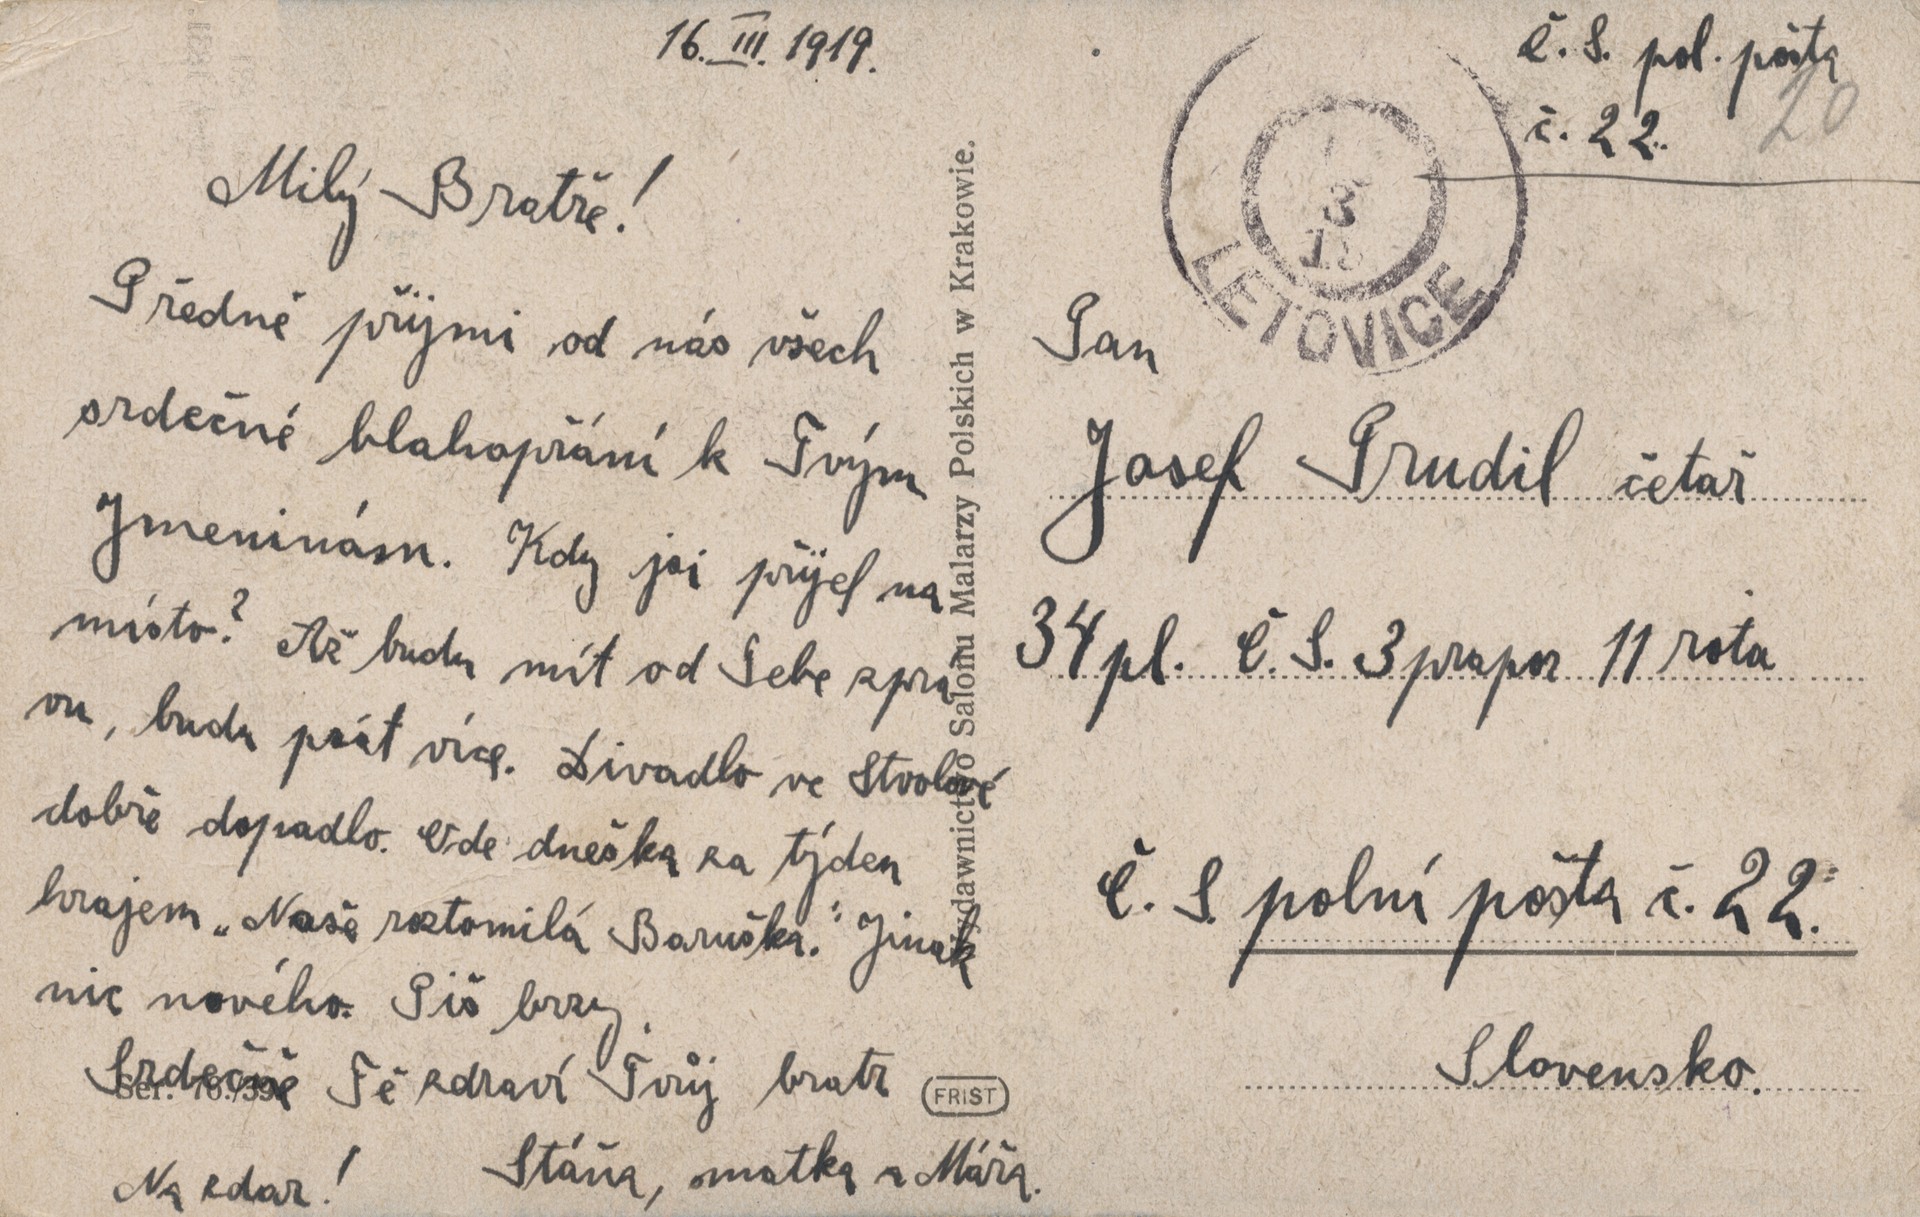 16. III. 1919.
Milý Bratře!
Předně přijmi od nás všech
srdečné blahopřání k Tvým
Jmeninám. Kdy jsi přijel na
místo? Až budu mít od Tebe zprá
vu, budu psát více. Divadlo ve Stvolové
dobře dopadlo. Ode dneška za týden
hrajem „Naše roztomilá Baruška." Jinak
nic nového. Piš brzy.
Srdečně Tě zdraví Tvůj bratr
Stáňa, matka a Máňa.
Na zdar!
Ser. 76./39
Wydawnictwo Salonu Malarzy Polskich w Krakowie.
FRIST
Č. S. pol. pošta
č. 22.
20
3
LETOVICE
Pan
Josef Prudil četař
34 pl. Č. S. 3 prapor 11 rota
Č. S. polní pošta č. 22.
Slovensko.